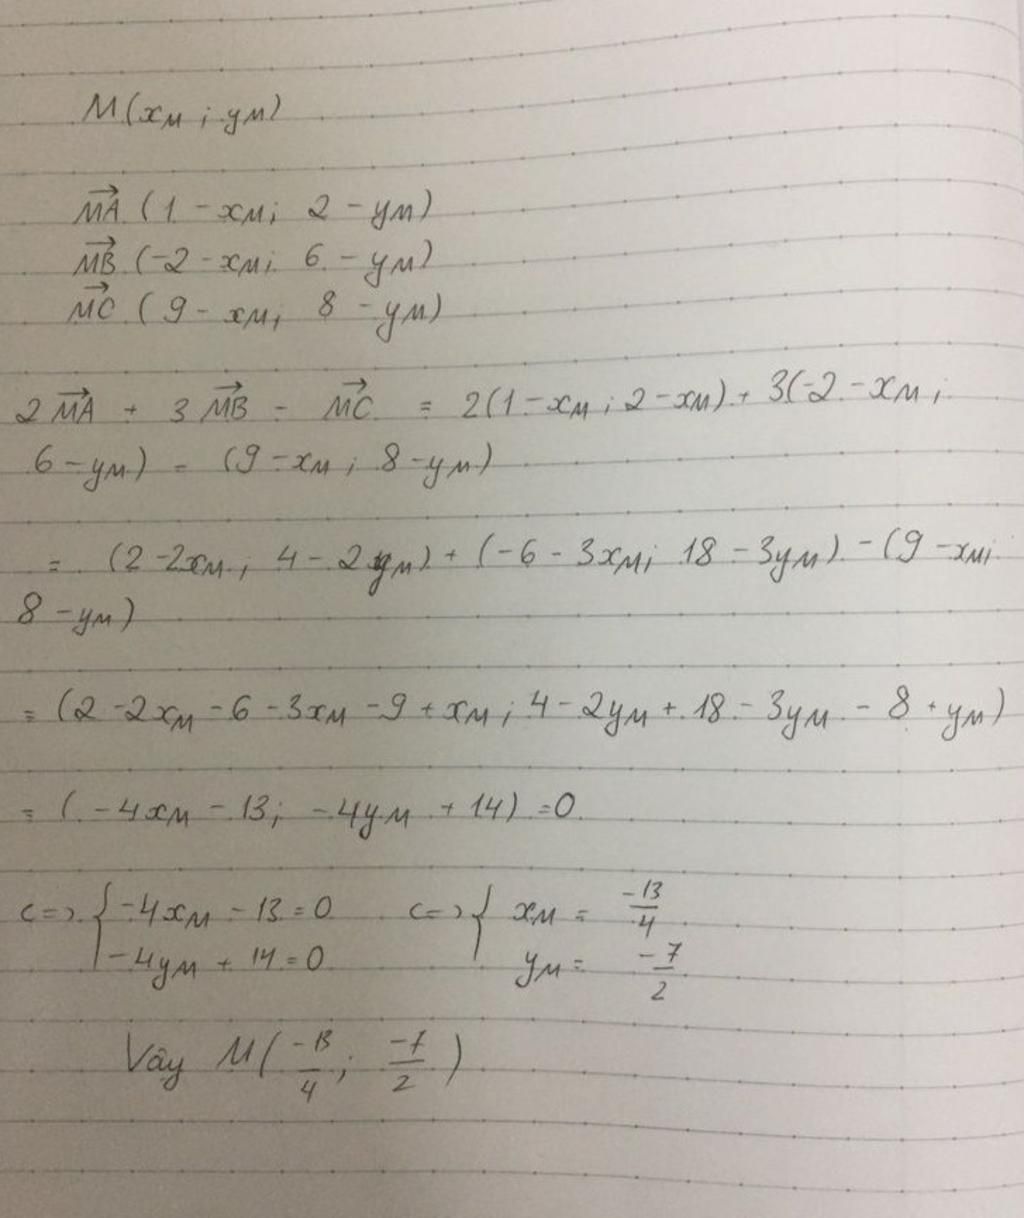 M(xM ; yM)
MA (1 - xM; 2 - yM)
MB (-2 - xM; 6 - yM)
MC (9 - xM; 8 - yM)
2 MA + 3 MB - MC = 2(1 - xM ; 2 - xM) + 3(-2 - xM ;
6 - yM) - (9 - xM ; 8 - yM)
= (2 - 2xM ; 4 - 2yM) + (-6 - 3xM; 18 - 3yM) - (9 - xM;
8 - yM)
= (2 - 2xM - 6 - 3xM - 9 + xM ; 4 - 2yM + 18 - 3yM - 8 + yM)
= ( -4xM - 13; -4yM + 14) = 0
<=> { -4xM - 13 = 0 <=> { xM = -13/4
-4yM + 14 = 0 yM = -7/2
Vậy M( -13/4 ; -7/2 )